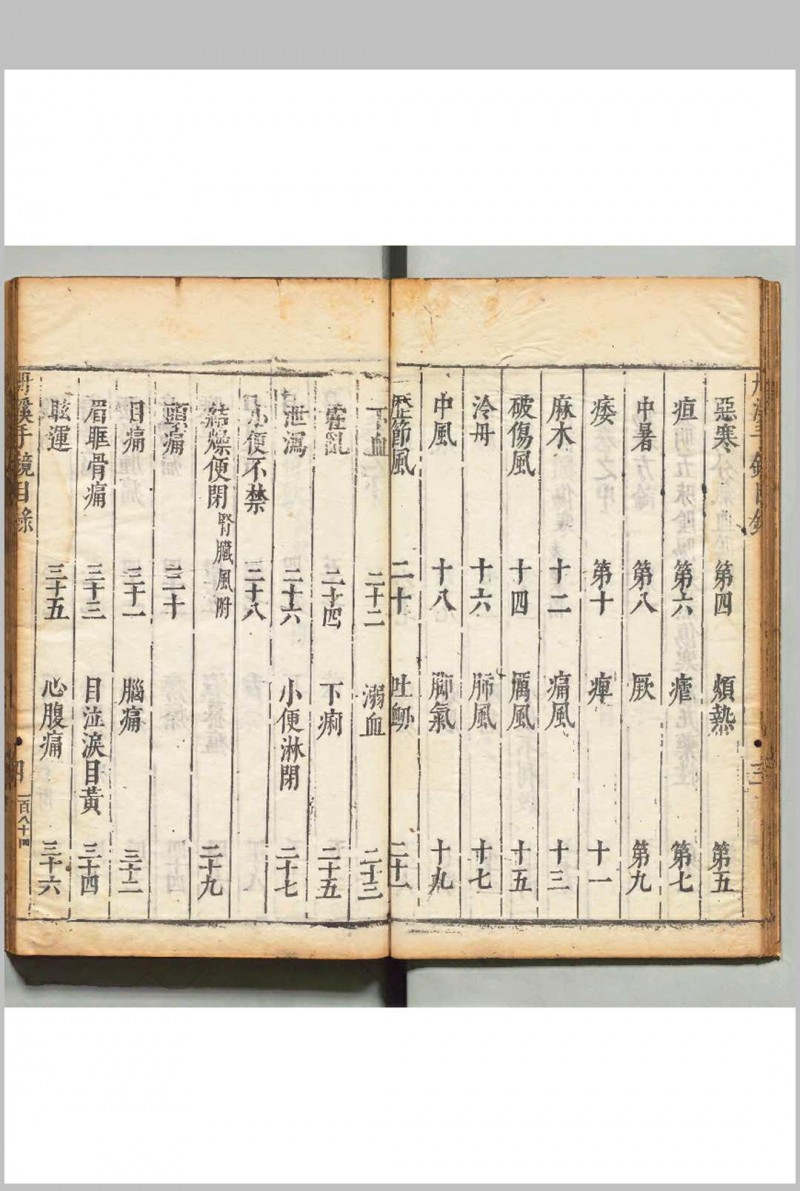 惡寒 第四 煩熱 第五
疸 第六 瘧 第七
中暑 第八 厥 第九
痿 第十 痺 十一
麻木 十二 痛風 十三
破傷風 十四 癘風 十五
泠丹 十六 肺風 十七
中風 十八 脚氣 十九
歷節風 二十 吐衄 二十一
下血 二十二 溺血 二十三
霍亂 二十四 下痢 二十五
泄瀉 二十六 小便淋閉 二十七
小便不禁 二十八
結燥便閉 腎臟風附 二十九
頭痛 三十
目痛 三十一 腦痛 三十二
眉眶骨痛 三十三 目泣淚目黃 三十四
眩運 三十五 心腹痛 三十六
丹溪手鏡目錄 一百八十四